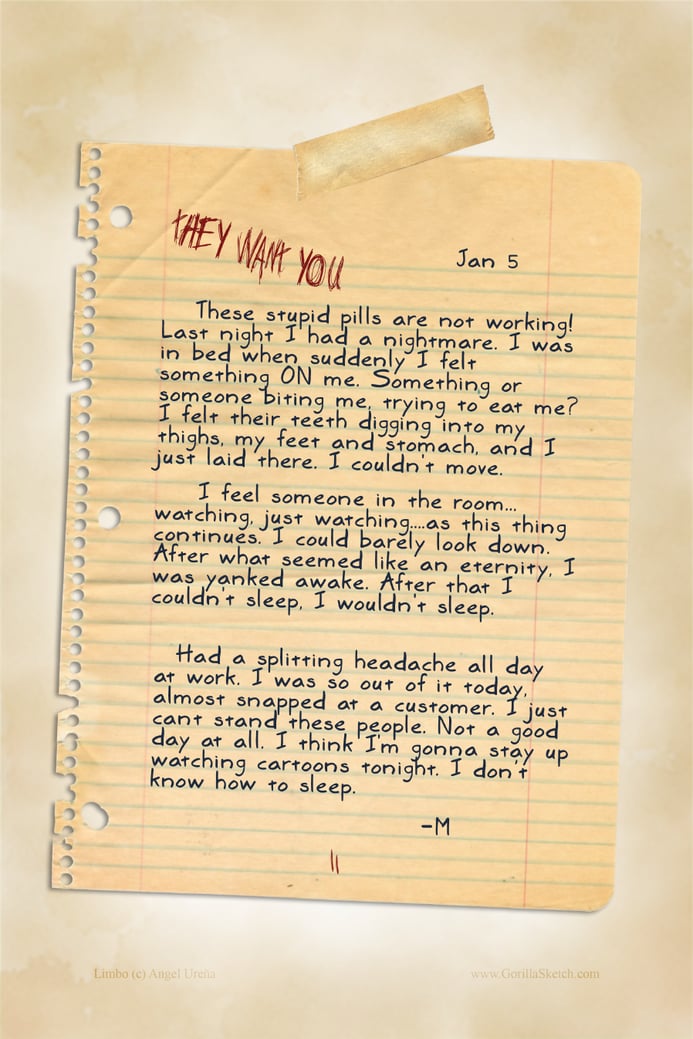 THEY WANT YOU
Jan 5
These stupid pills are not working!
Last night I had a nightmare. I was
in bed when suddenly I felt
something ON me. Something or
someone biting me, trying to eat me?
I felt their teeth digging into my
thighs, my feet and stomach, and I
just laid there. I couldn't move.
I feel someone in the room...
watching, just watching....as this thing
continues. I could barely look down.
After what seemed like an eternity, I
was yanked awake. After that I
couldn't sleep, I wouldn't sleep.
Had a splitting headache all day
at work. I was so out of it today,
almost snapped at a customer. I just
cant stand these people. Not a good
day at all. I think I'm gonna stay up
watching cartoons tonight. I don't
know how to sleep.
-M
11
Limbo (c) Angel Ureña
www.GorillaSketch.com